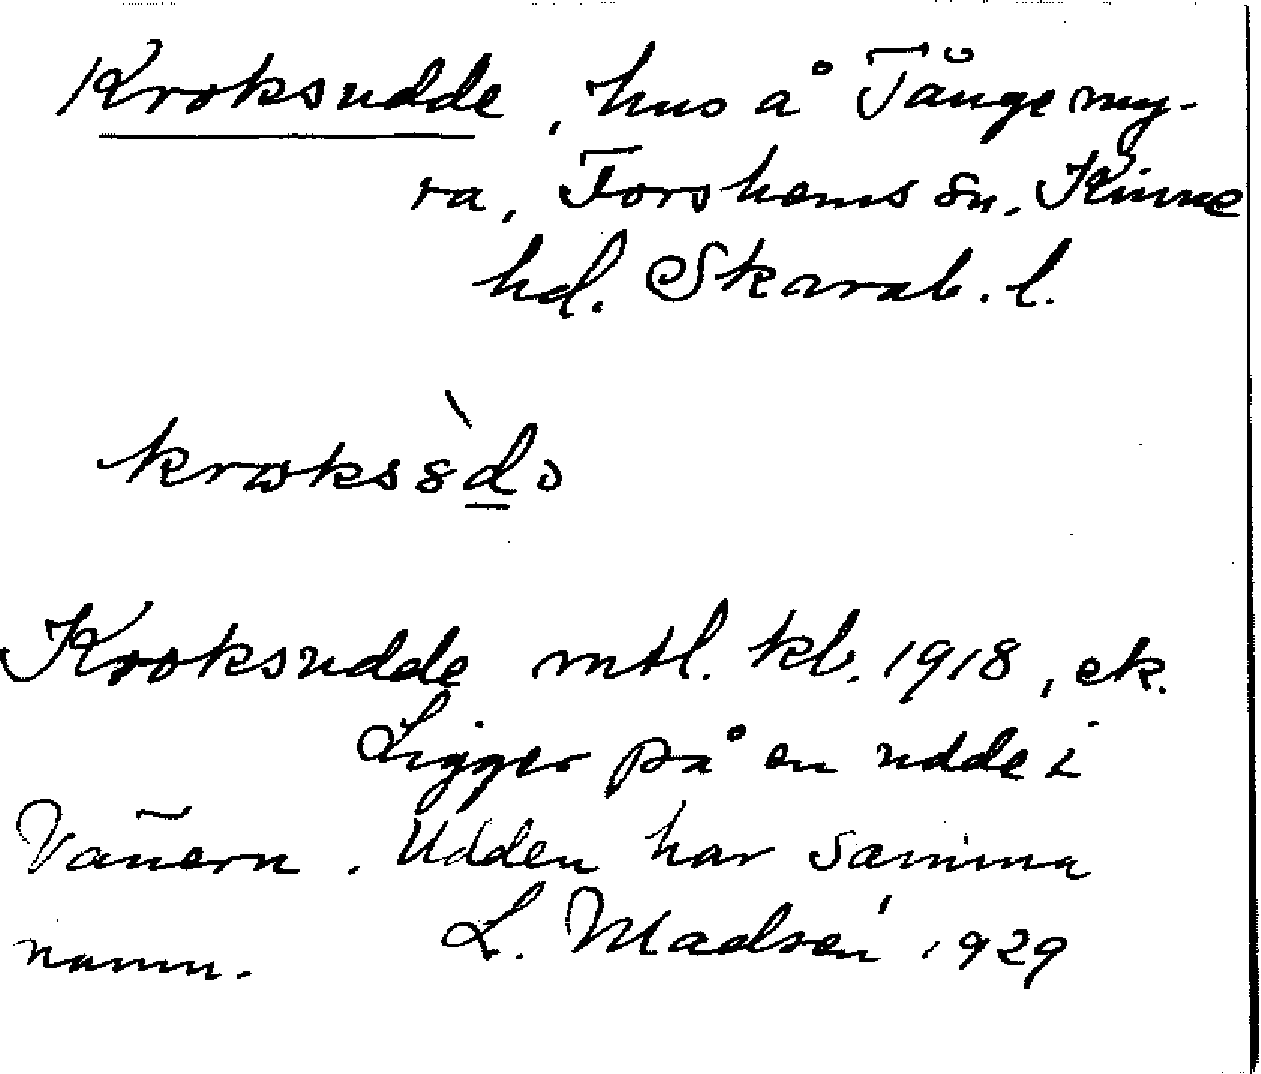 Kroksudde, hus å Tängemy-
ra, Forshems sn. Kinne
hd. Skarab. l.
Kroksudde mtl. kb. 1918, ek.
Ligger på en udde i
Vänern. Udden har samma
namn. L. Madsén 1929